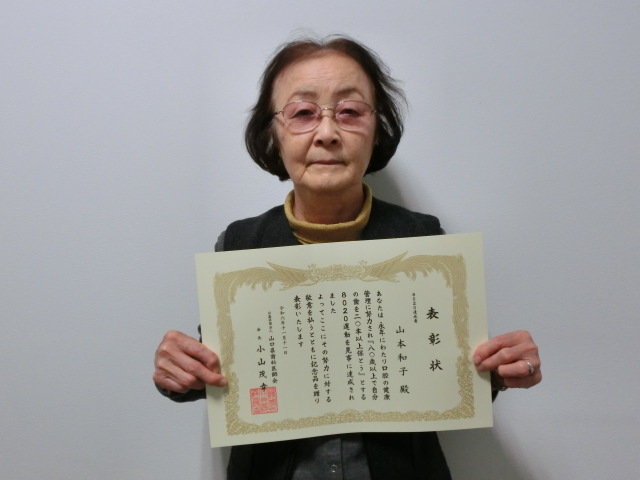 表彰状
8020達成者
山本和子 殿
あなたは 永年にわたり口腔の健康
管理に努力され『八〇歳以上で自分
の歯を二〇本以上保とう』とする
8020運動を見事に達成され
ました
よってここにその努力に対する
敬意を払うとともに記念品を贈り
表彰いたします
令和六年十一月十一日
山口県歯科医師会
会長 小山茂幸